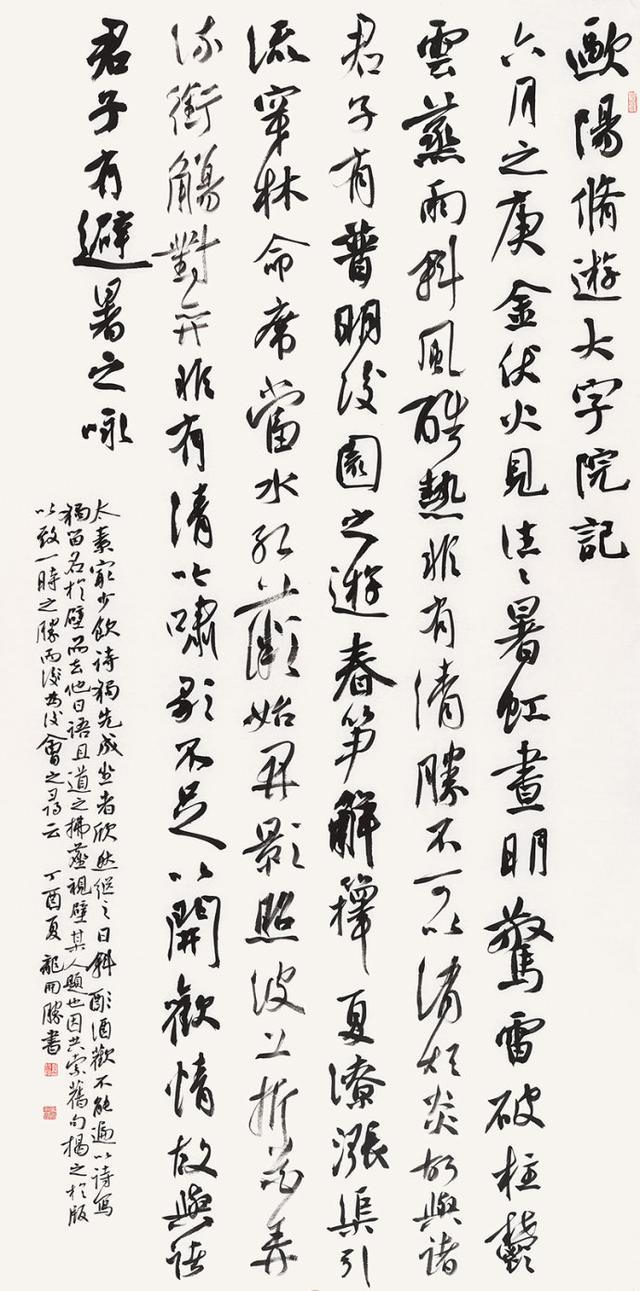 歐陽脩遊大字院記
六月之庚金伏火見往〻暑虹晝明驚雷破柱鬱
雲蒸雨斜風酷熱非有清勝不可以消煩炎故與諸
君子有普明後園之遊春筍解籜夏潦漲渠引
流穿林命席當水紅薇始開影照波上折花弄
流銜觴對弈非有清吟嘯歌不足以開歡情故與諸
君子有避暑之詠
太素最少飲詩獨先成坐者欣然繼之日斜酒歡不能遍以詩寫
獨留名於壁而去他日語且道之拂塵視壁某人題也因共索舊句揭之於版
以致一時之勝而後為後會之尋云 丁酉夏 龍開勝書